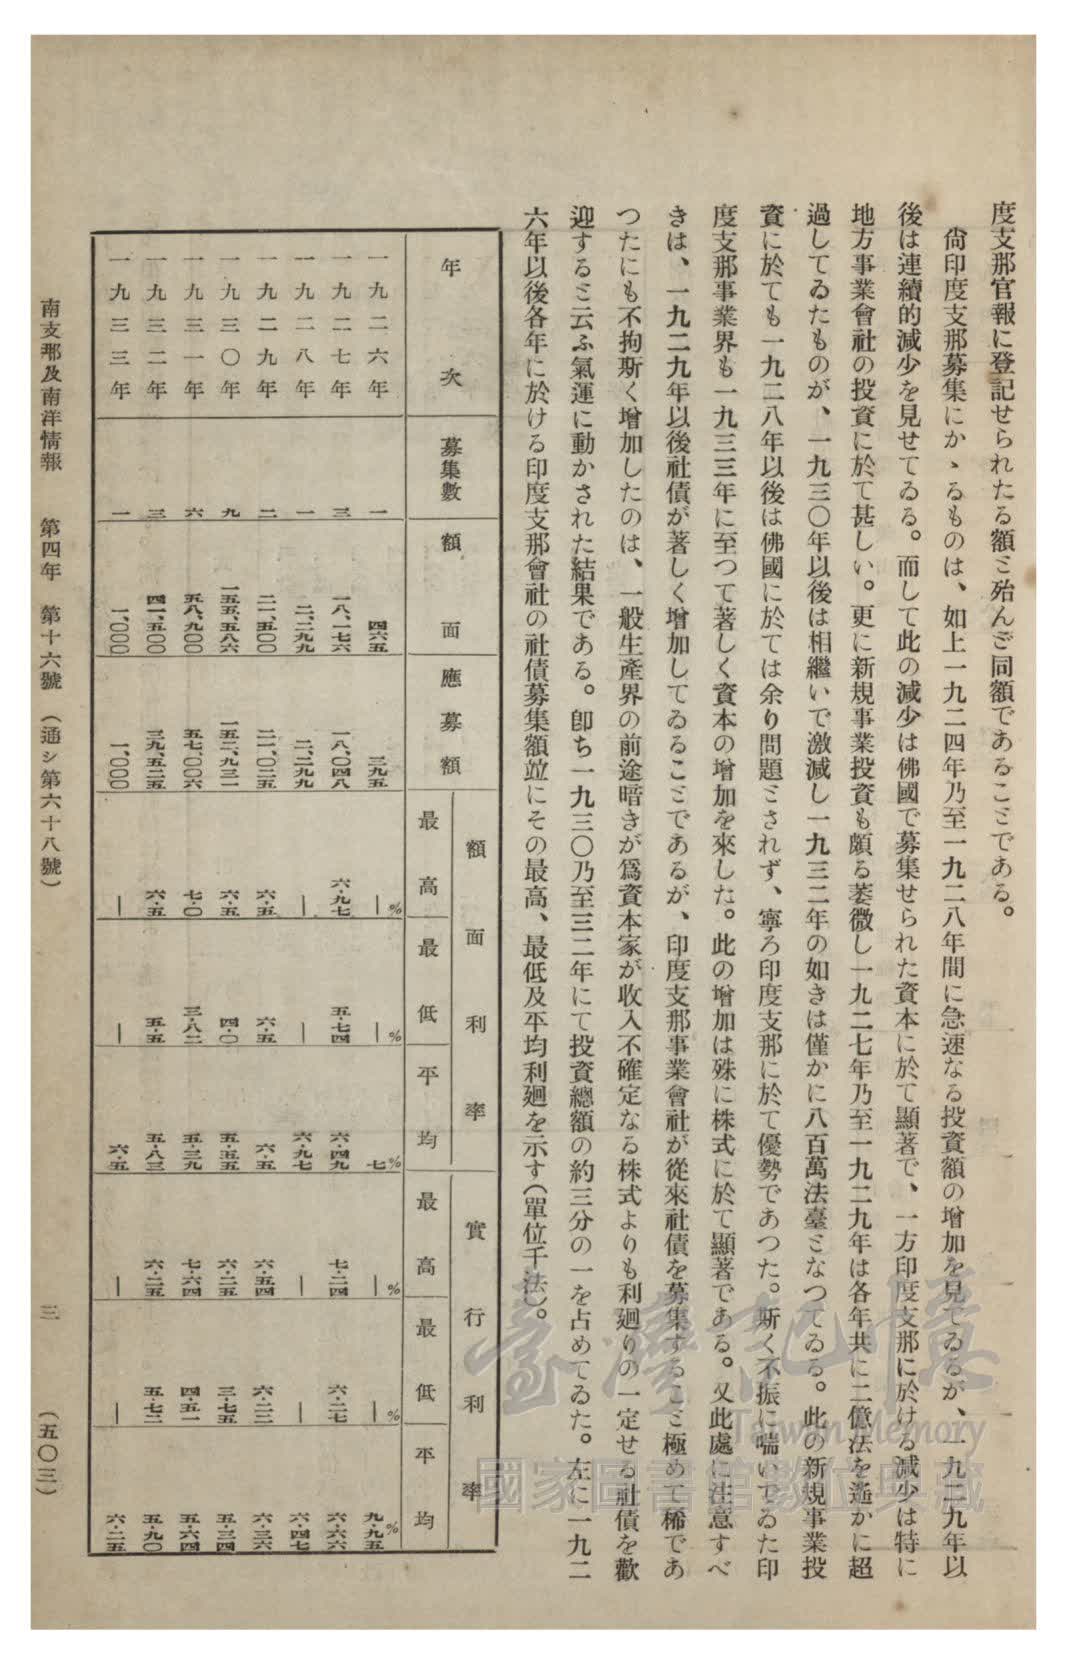 度支那官報に登記せられたる額と殆んど同額であることである。
尙印度支那募集にかゝるものは、如上一九二四年乃至一九二八年間に急速なる投資額の增加を見てゐるが、一九二九年以
後は連續的減少を見せてゐる。而して此の減少は佛國で募集せられた資本に於て顯著で、一方印度支那に於ける減少は特に
地方事業會社の投資に於て甚しい。更に新規事業投資も頗る萎微し一九二七年乃至一九二九年は各年共に二億法を遙かに超
過してゐたものが、一九三〇年以後は相繼いで激減し一九三二年の如きは僅かに八百萬法臺となつてゐる。此の新規事業投
資に於ても一九二八年以後は佛國に於ては余り問題とされず、寧ろ印度支那に於て優勢であつた。斯く不振に喘いでゐた印
度支那事業界も一九三三年に至つて著しく資本の增加を來した。此の增加は殊に株式に於て顯著である。又此處に注意すべ
きは、一九二九年以後社債が著しく增加してゐることであるが、印度支那事業會社が從來社債を募集すること極めて稀であ
つたにも不拘斯く增加したのは、一般生產界の前途暗きが爲資本家が收入不確定なる株式よりも利廻りの一定せる社債を歡
迎すると云ふ氣運に動かされた結果である。卽ち一九三〇乃至三二年にて投資總額の約三分の一を占めてゐた。左に一九二
六年以後各年に於ける印度支那會社の社債募集額竝にその最高、最低及平均利廻を示す（單位千法）。
年次 募集數 額面 應募額 額面利率 最高 最低 平均 實行利率 最高 最低 平均
一九二六年 一 四六五 三九五 ｜% ｜% 七% ｜% ｜% 九・九五%
一九二七年 三 一八、一七六 一八、〇四八 六・九七 五・七四 六・四九 七・二四 六・二七 六・六六
一九二八年 一 二、二九九 二、二九九 ｜ ｜ 六・九七 ｜ ｜ 六・四七
一九二九年 二 二一、五〇〇 二一、〇二五 六・五 六・五 六・五 六・五四 六・二二 六・三六
一九三〇年 九 一五五、五八六 一五二、九三一 六・五 四・〇 五・五五 六・二五 三・七五 五・三四
一九三一年 六 五八、九〇〇 五七、〇〇六 七・〇 三・八二 五・三九 七・六四 四・五一 五・六四
一九三二年 三 四一、五〇〇 三九、五二五 六・五 五・五 五・八三 六・二五 五・七二 五・九〇
一九三三年 一 一、〇〇〇 一、〇〇〇 ｜ ｜ 六・五 ｜ ｜ 六・二五
南支那及南洋情報 第四年 第十六號 （通シ第六十八號） 三 （五〇三）
臺灣記憶
Taiwan Memory
國家圖書館數位典藏